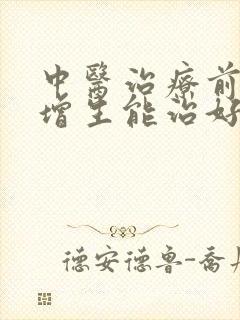 中醫治療前
增生能治好
德安德鲁-喬